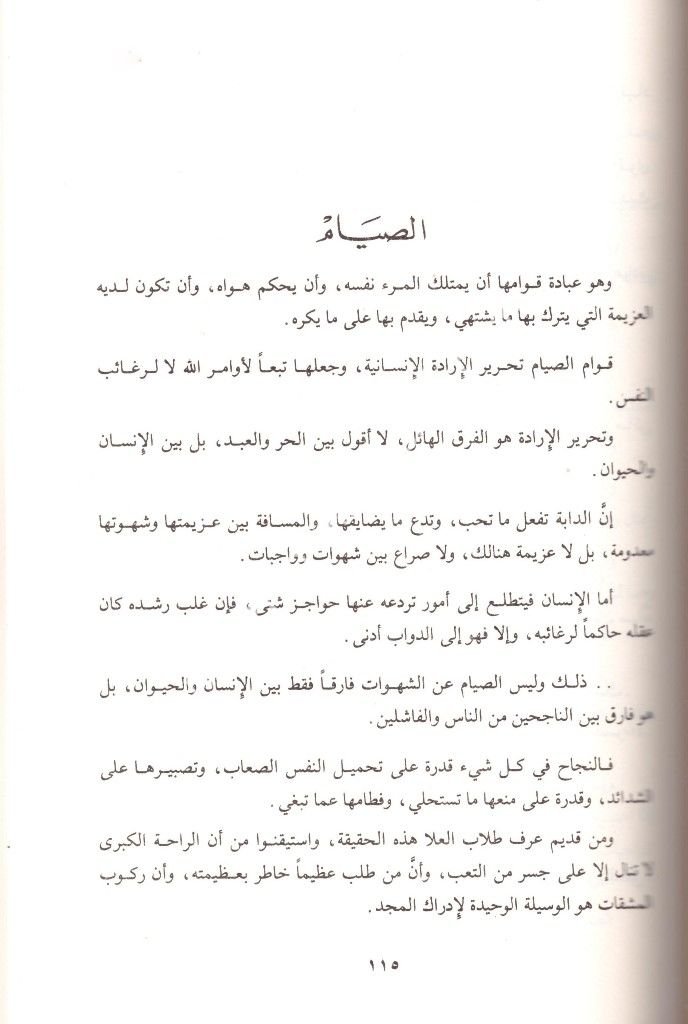 الصيَام
وهو عبادة قوامها أن يمتلك المرء نفسه، وأن يحكم هواه، وأن تكون لديه
العزيمة التي يترك بها ما يشتهي، ويقدم بها على ما يكره.
قوام الصيام تحرير الإرادة الإنسانية، وجعلها تبعاً لأوامر الله لا لرغائب
النفس.
وتحرير الإرادة هو الفرق الهائل، لا أقول بين الحر والعبد، بل بين الإنسان
والحيوان.
إنَّ الدابة تفعل ما تحب، وتدع ما يضايقها، والمسافة بين عزيمتها وشهوتها
معدومة، بل لا عزيمة هنالك، ولا صراع بين شهوات وواجبات.
أما الإنسان فيتطلع إلى أمور تردعه عنها حواجز شتى، فإن غلب رشده كان
عقله حاكماً لرغائبه، وإلا فهو إلى الدواب أدنى.
.. ذلك وليس الصيام عن الشهوات فارقاً فقط بين الإنسان والحيوان، بل
هو فارق بين الناجحين من الناس والفاشلين.
فالنجاح في كل شيء قدرة على تحميل النفس الصعاب، وتصبيرها على
الشدائد، وقدرة على منعها ما تستحلي، وفطامها عما تبغي.
ومن قديم عرف طلاب العلا هذه الحقيقة، واستيقنوا من أن الراحة الكبرى
لا تنال إلا على جسر من التعب، وأنَّ من طلب عظيماً خاطر بعظيمته، وأن ركوب
المشقات هو الوسيلة الوحيدة لإدراك المجد.
١١٥